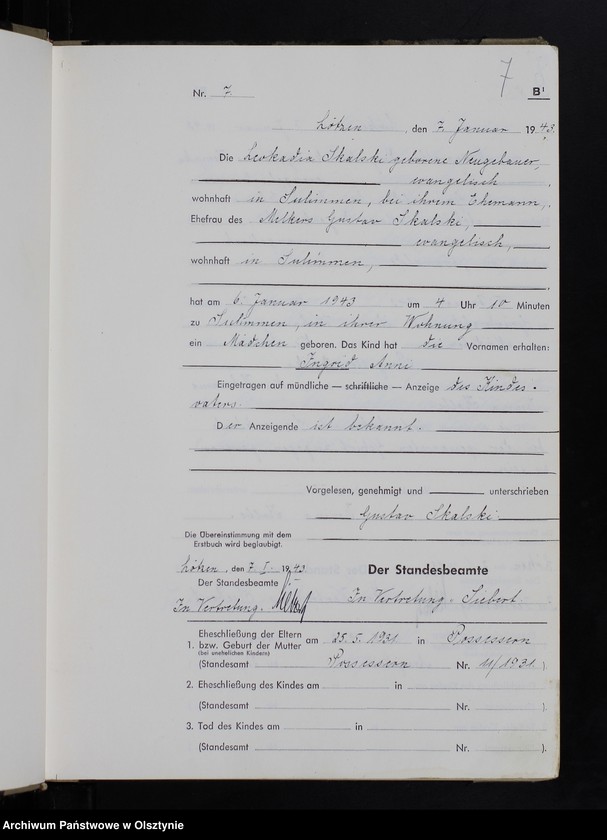 7
Nr. 7. B¹
Lötzen, den 7. Januar 1943.
Die Leokadia Skalski geborene Neugebauer,
evangelisch,
wohnhaft in Sulimmen, bei ihrem Ehemann,
Ehefrau des Melkers Gustav Skalski,
evangelisch,
wohnhaft in Sulimmen,
hat am 6. Januar 1943 um 4 Uhr 10 Minuten
zu Sulimmen, in ihrer Wohnung
ein Mädchen geboren. Das Kind hat die Vornamen erhalten:
Ingrid Anni
Eingetragen auf mündliche — schriftliche — Anzeige des Kindes-
vaters.
Der Anzeigende ist bekannt.
Vorgelesen, genehmigt und unterschrieben
Gustav Skalski.
Die Übereinstimmung mit dem
Erstbuch wird beglaubigt.
Lötzen, den 7. I. 1943
Der Standesbeamte
Der Standesbeamte
In Vertretung.
In Vertretung. Siebert.
1. Eheschließung der Eltern
bzw. Geburt der Mutter am 25. 5. 1931 in Possessern
(bei unehelichen Kindern)
(Standesamt Possessern Nr. 11/1931.)
2. Eheschließung des Kindes am in
(Standesamt Nr. ).
3. Tod des Kindes am in
(Standesamt Nr. ).
Archiwum Państwowe w Olsztynie